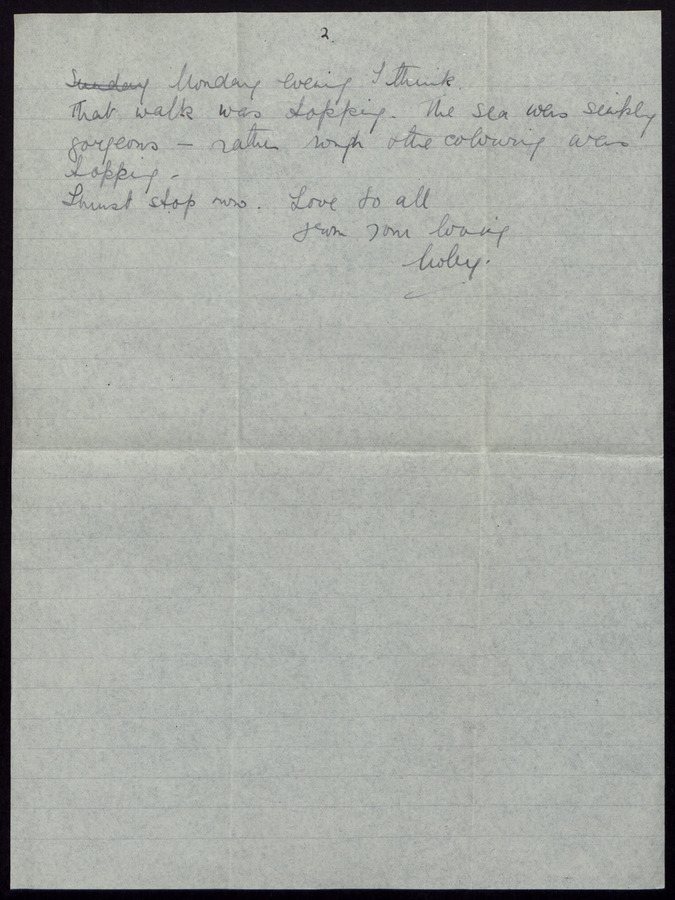 2.
Sunday Monday evening I think.
That walk was topping. The sea was simply
gorgeous — rather rough & the colouring was
topping -
I must stop now. Love to all
from your loving